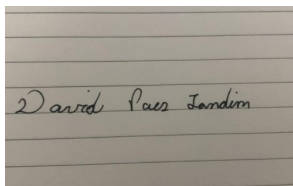 David Paes Landim